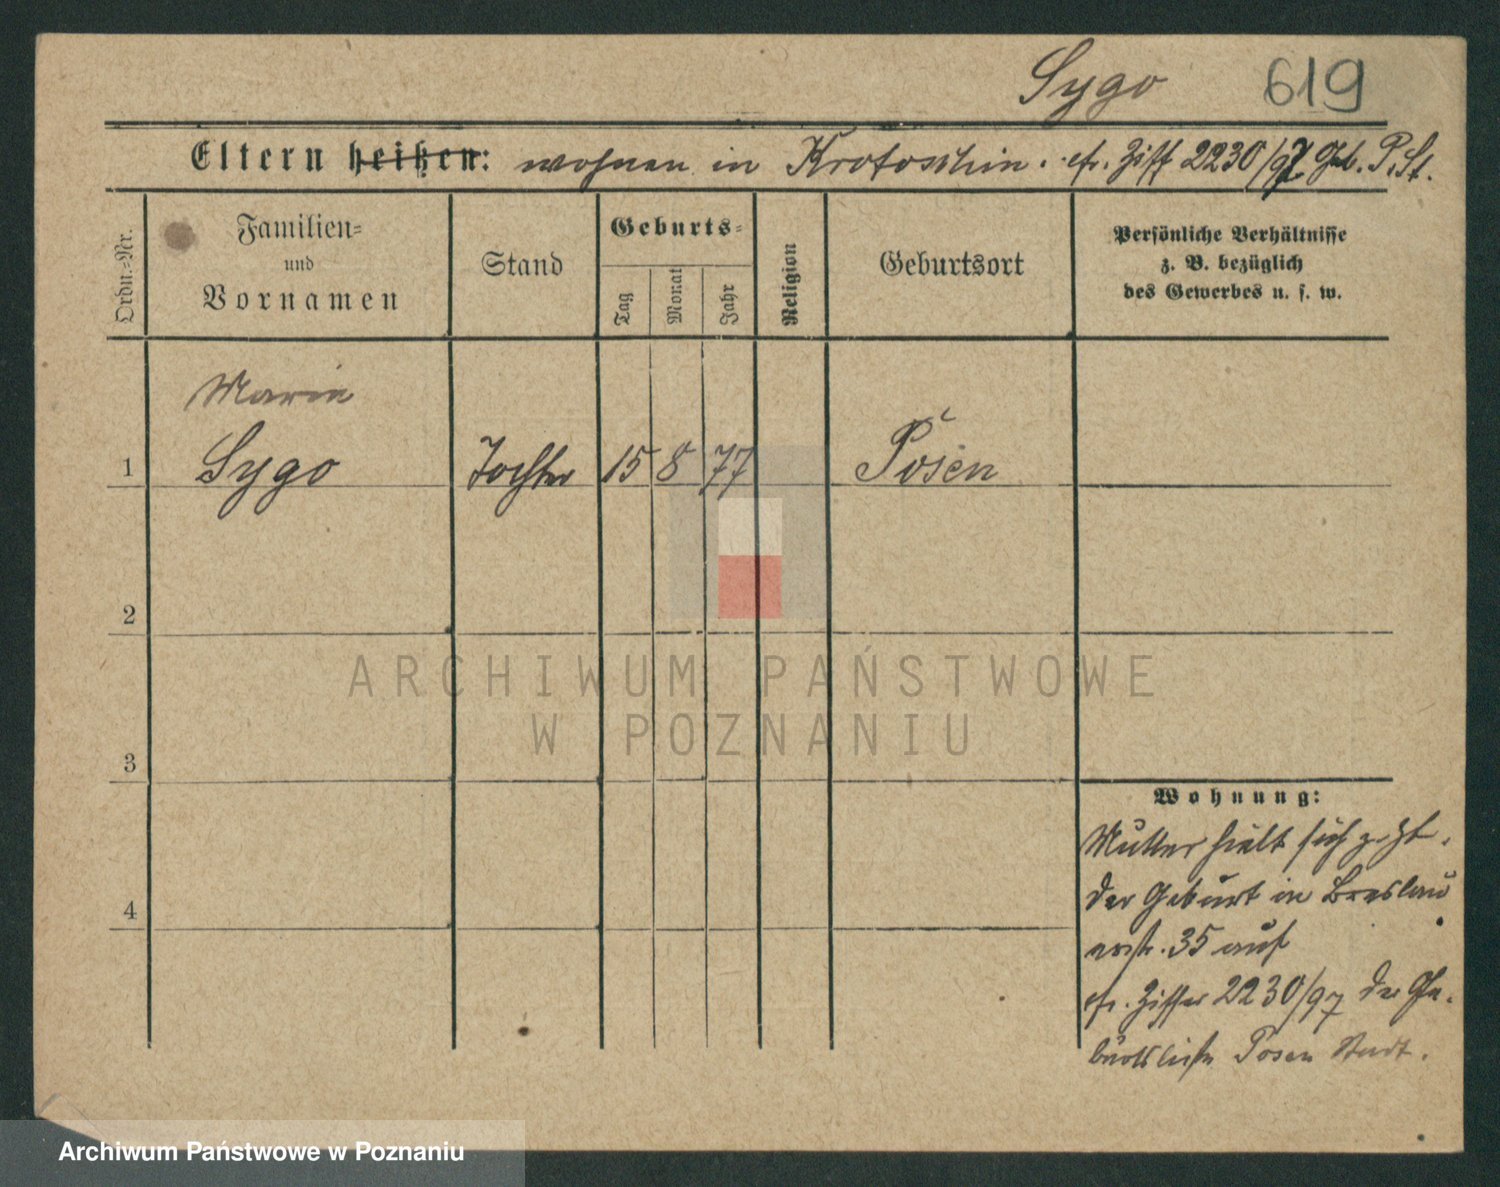 Sygo 619
Eltern heißen: wohnen in Krotoschin. cfr. Ziff 2230/97 Geb. P. St.
Ordn.-Nr.
Familien-
und
Vornamen
Stand
Geburts-
Tag
Monat
Jahr
Religion
Geburtsort
Persönliche Verhältnisse
z. B. bezüglich
des Gewerbes u. s. w.
Marie
1 Sygo Tochter 15 8 77 Posen
2
3
4
ARCHIWUM PAŃSTWOWE
W POZNANIU
Wohnung:
Mutter hielt sich z. Zt.
der Geburt in Breslau
35 auf
cfr. Ziffer 2230/97 der Ge-
burtsliste Posen Stadt.
Archiwum Państwowe w Poznaniu